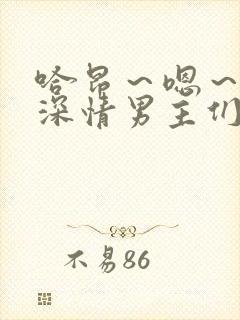 哈昂～嗯～
深情男主们
不易86